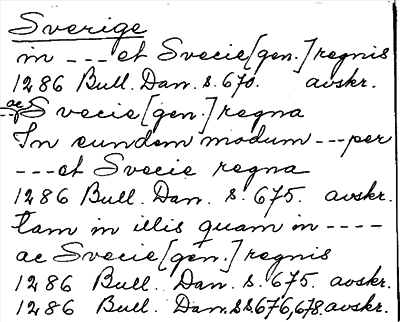 Sverige
in --- et Svecie [gen.] regnis
1286 Bull. Dan. s. 670. avskr.
--- ac Svecie [gen.] regna
In eundem modum --- per
--- et Svecie regna
1286 Bull. Dan. s. 675. avskr.
tam in illis quam in ----
ac Svecie [gen.] regnis
1286 Bull. Dan. s. 675. avskr.
1286 Bull. Dan. s.s. 676, 678. avskr.